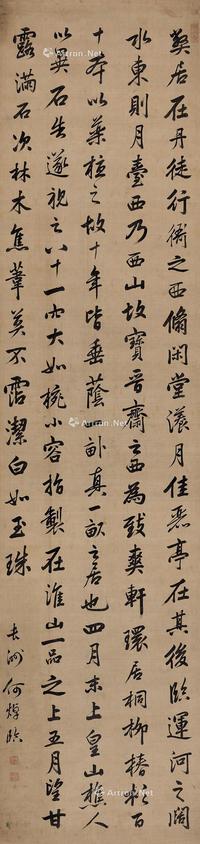 弊居在丹徒行衙之西翛閑堂漾月佳麗亭在其後臨運河之闊
水東則月臺西乃西山故寶晉齋之西為致爽軒環居桐柳椿杉百
十本以藥植之故十年皆垂蔭一畝真一畝之居也四月末上皇山樵人
以異石告遂視之八十一穴大如椀小容指製在淮山一品之上五月望甘
露滿石次林木焦葦莫不霑潔白如玉珠
長洲何焯臨